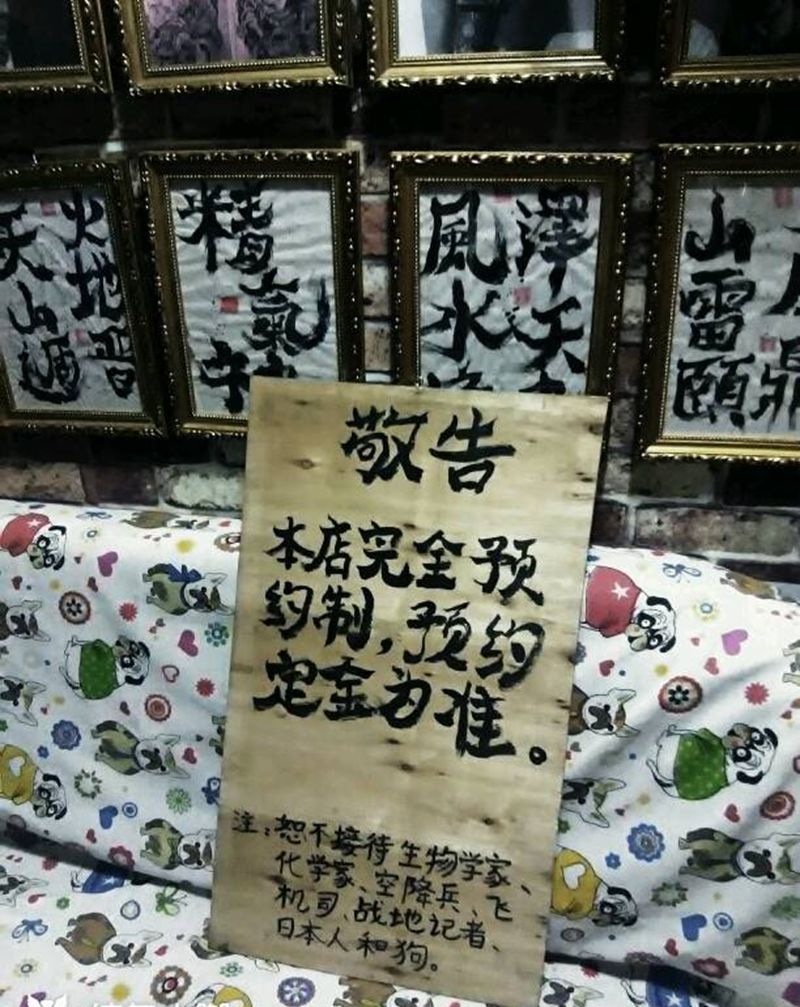 火地晋
天山遁
精氣神
澤天
風水
山雷頤
鼎
敬告
本店完全预
约制,预约
定金为准。
注:恕不接待生物学家、
化学家、空降兵、飞
机司、战地记者、
日本人和狗。